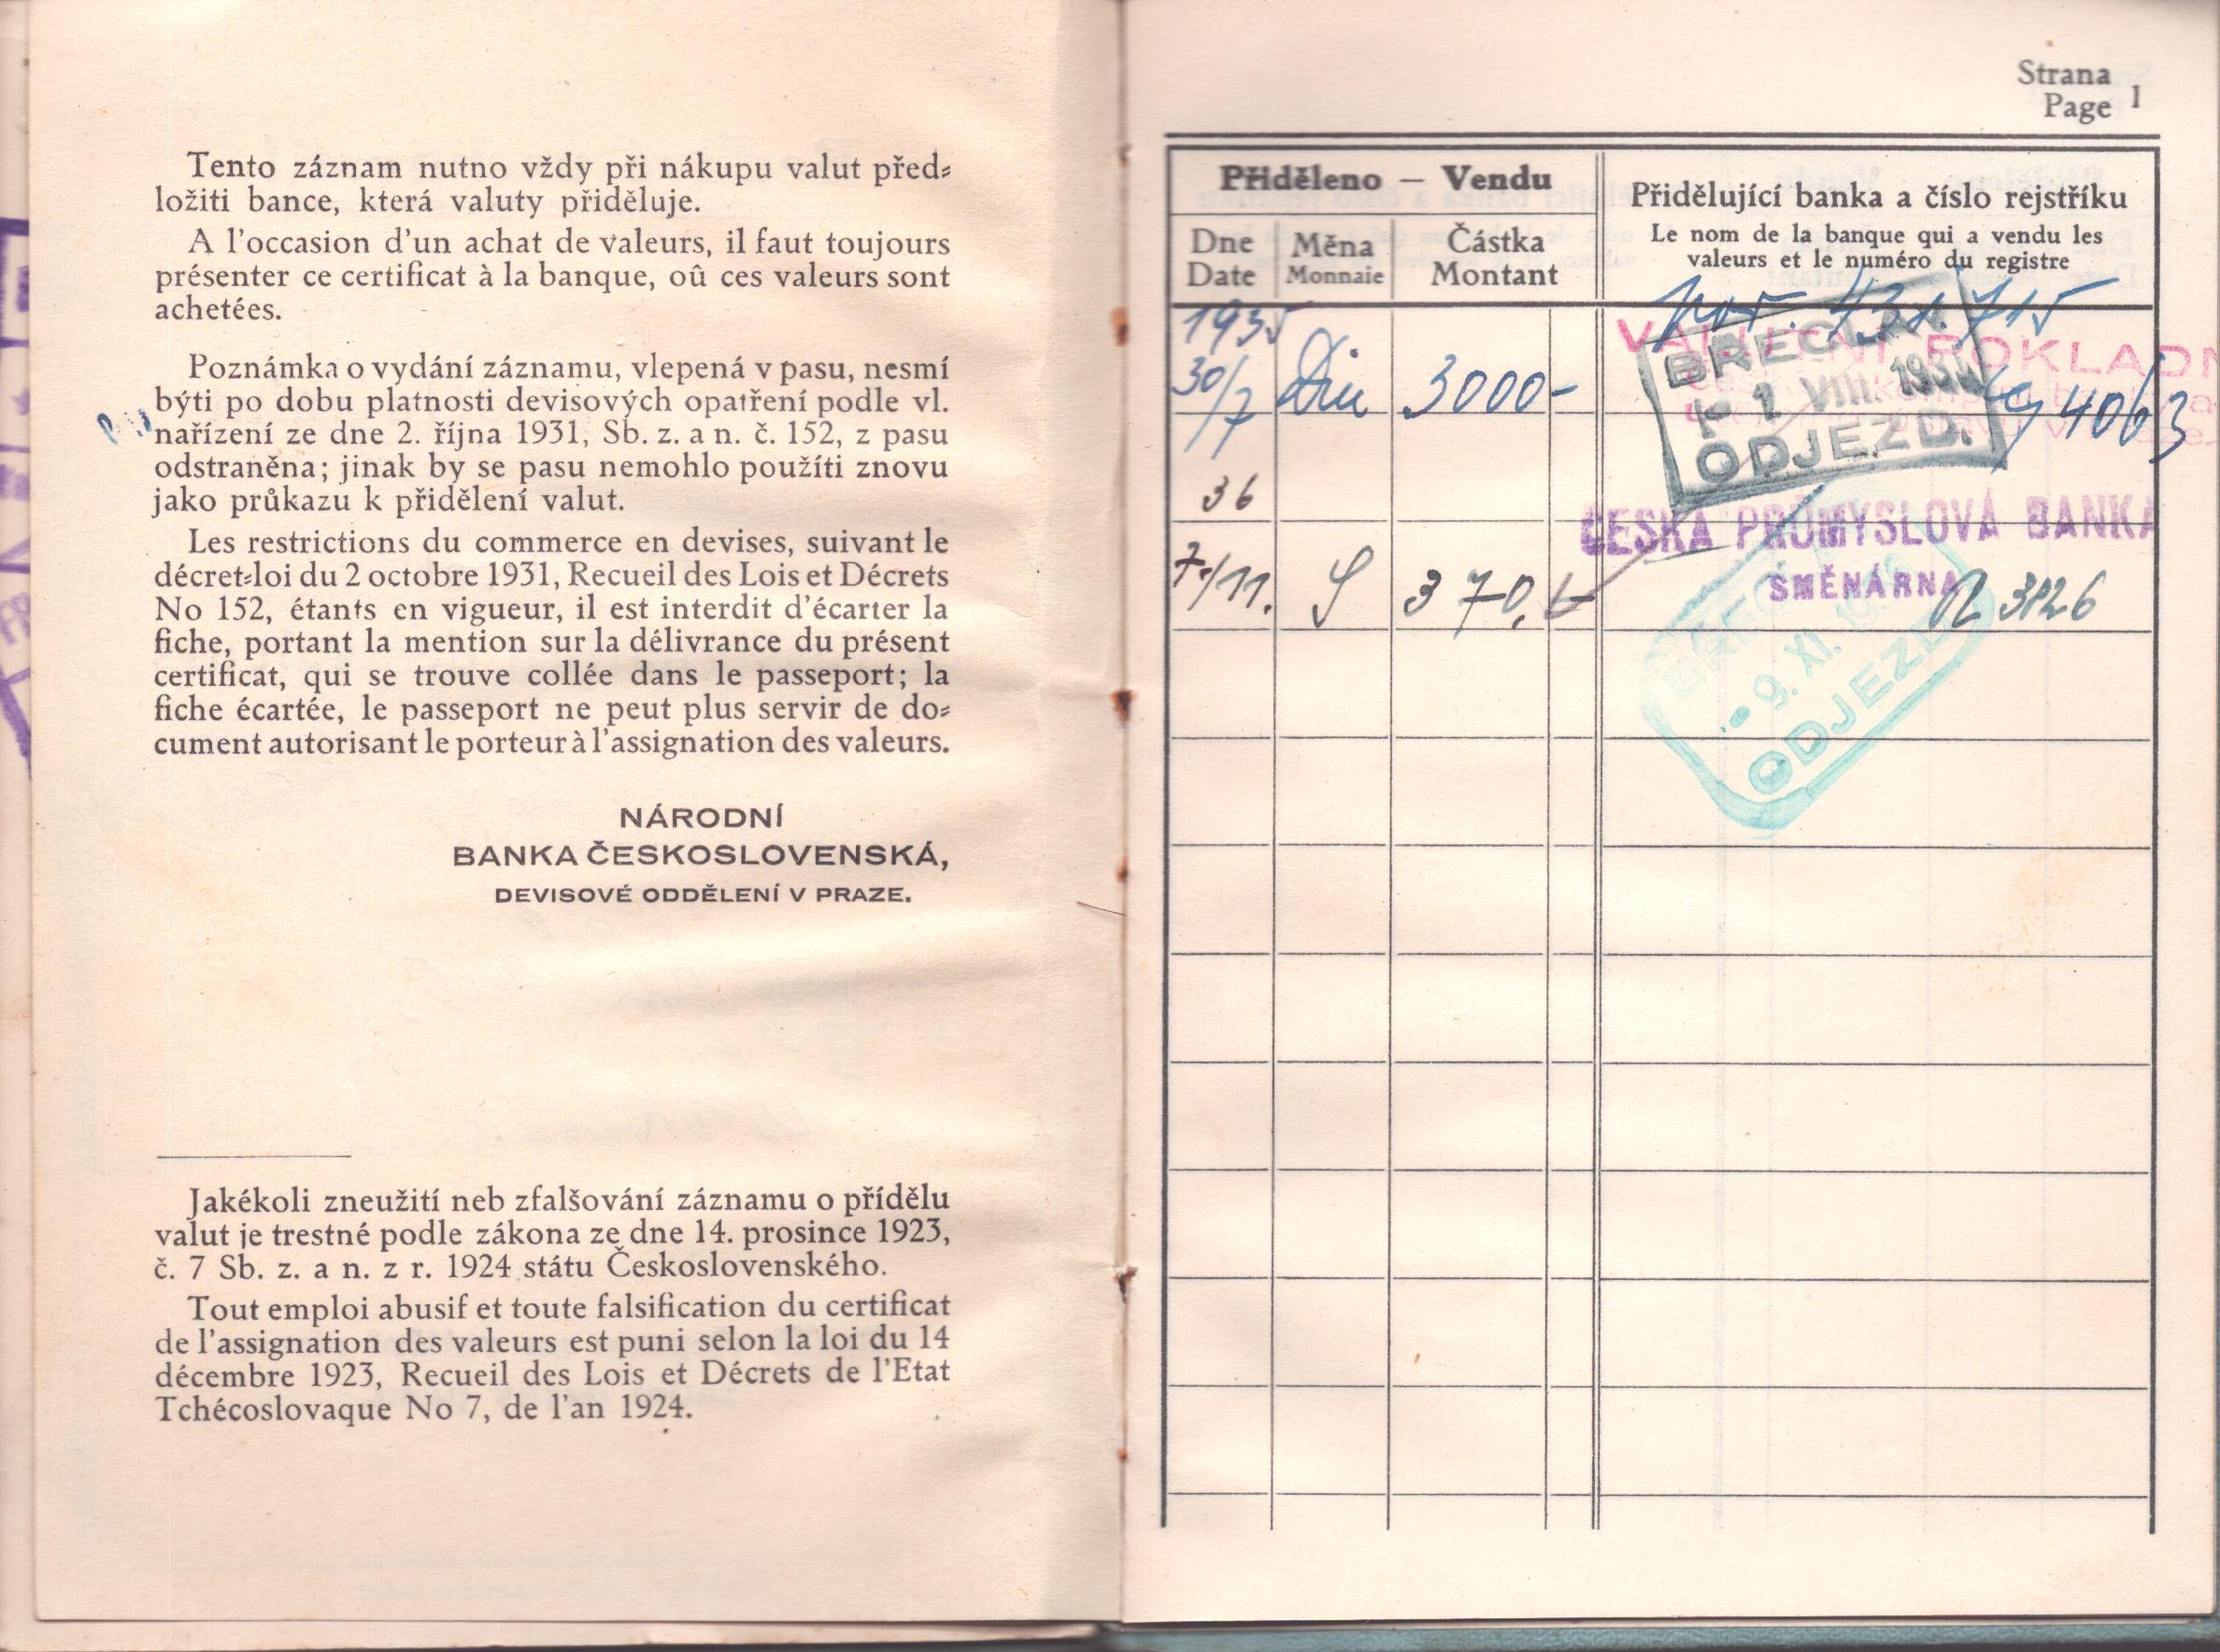 Tento záznam nutno vždy při nákupu valut před-
ložiti bance, která valuty přiděluje.
A l'occasion d'un achat de valeurs, il faut toujours
présenter ce certificat à la banque, oû ces valeurs sont
achetées.
Poznámka o vydání záznamu, vlepená v pasu, nesmí
býti po dobu platnosti devisových opatření podle vl.
nařízení ze dne 2. října 1931, Sb. z. a n. č. 152, z pasu
odstraněna; jinak by se pasu nemohlo použíti znovu
jako průkazu k přidělení valut.
Les restrictions du commerce en devises, suivant le
décret-loi du 2 octobre 1931, Recueil des Lois et Décrets
No 152, étants en vigueur, il est interdit d'écarter la
fiche, portant la mention sur la délivrance du présent
certificat, qui se trouve collée dans le passeport; la
fiche écartée, le passeport ne peut plus servir de do-
cument autorisant le porteur à l'assignation des valeurs.
NÁRODNÍ
BANKA ČESKOSLOVENSKÁ,
DEVISOVÉ ODDĚLENÍ V PRAZE.
Jakékoli zneužití neb zfalšování záznamu o přídělu
valut je trestné podle zákona ze dne 14. prosince 1923,
č. 7 Sb. z. a n. z r. 1924 státu Československého.
Tout emploi abusif et toute falsification du certificat
de l'assignation des valeurs est puni selon la loi du 14
décembre 1923, Recueil des Lois et Décrets de l'Etat
Tchécoslovaque No 7, de l'an 1924.
Strana
Page 1
Přiděleno — Vendu
Přidělující banka a číslo rejstříku
Le nom de la banque qui a vendu les
valeurs et le numéro du registre
Dne
Date
Měna
Monnaie
Částka
Montant
1935
30/7 Din 3000-
431.715
VALUTNÍ POKLADN
BŘECLAV
1 VIII 193
ODJEZD.
4063
36
ČESKÁ PRŮMYSLOVÁ BANKA
SMĚNÁRNA
7./11. S 370,- 3126
BŘECLAV
9. XI. 19
ODJEZD